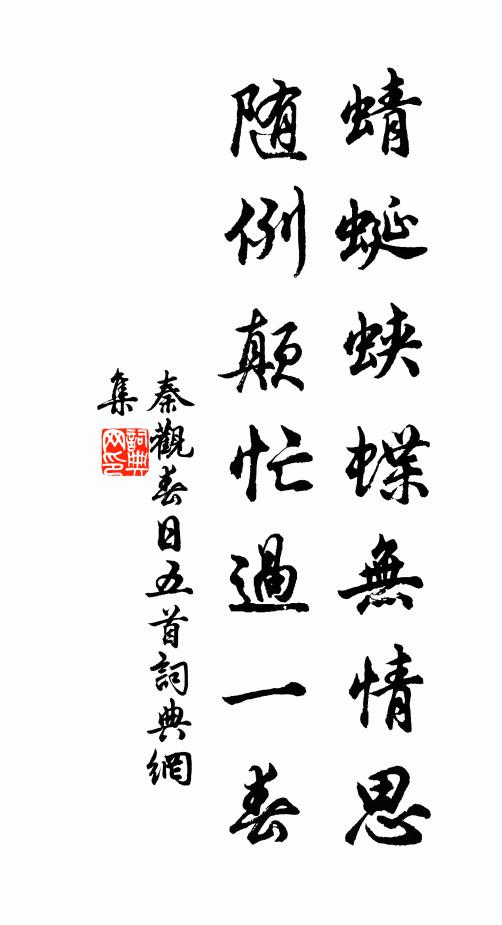 蜻蜓蛺蝶無情思
随例顛忙過一春
秦觀春日五首詞典網
集
詞典
网印